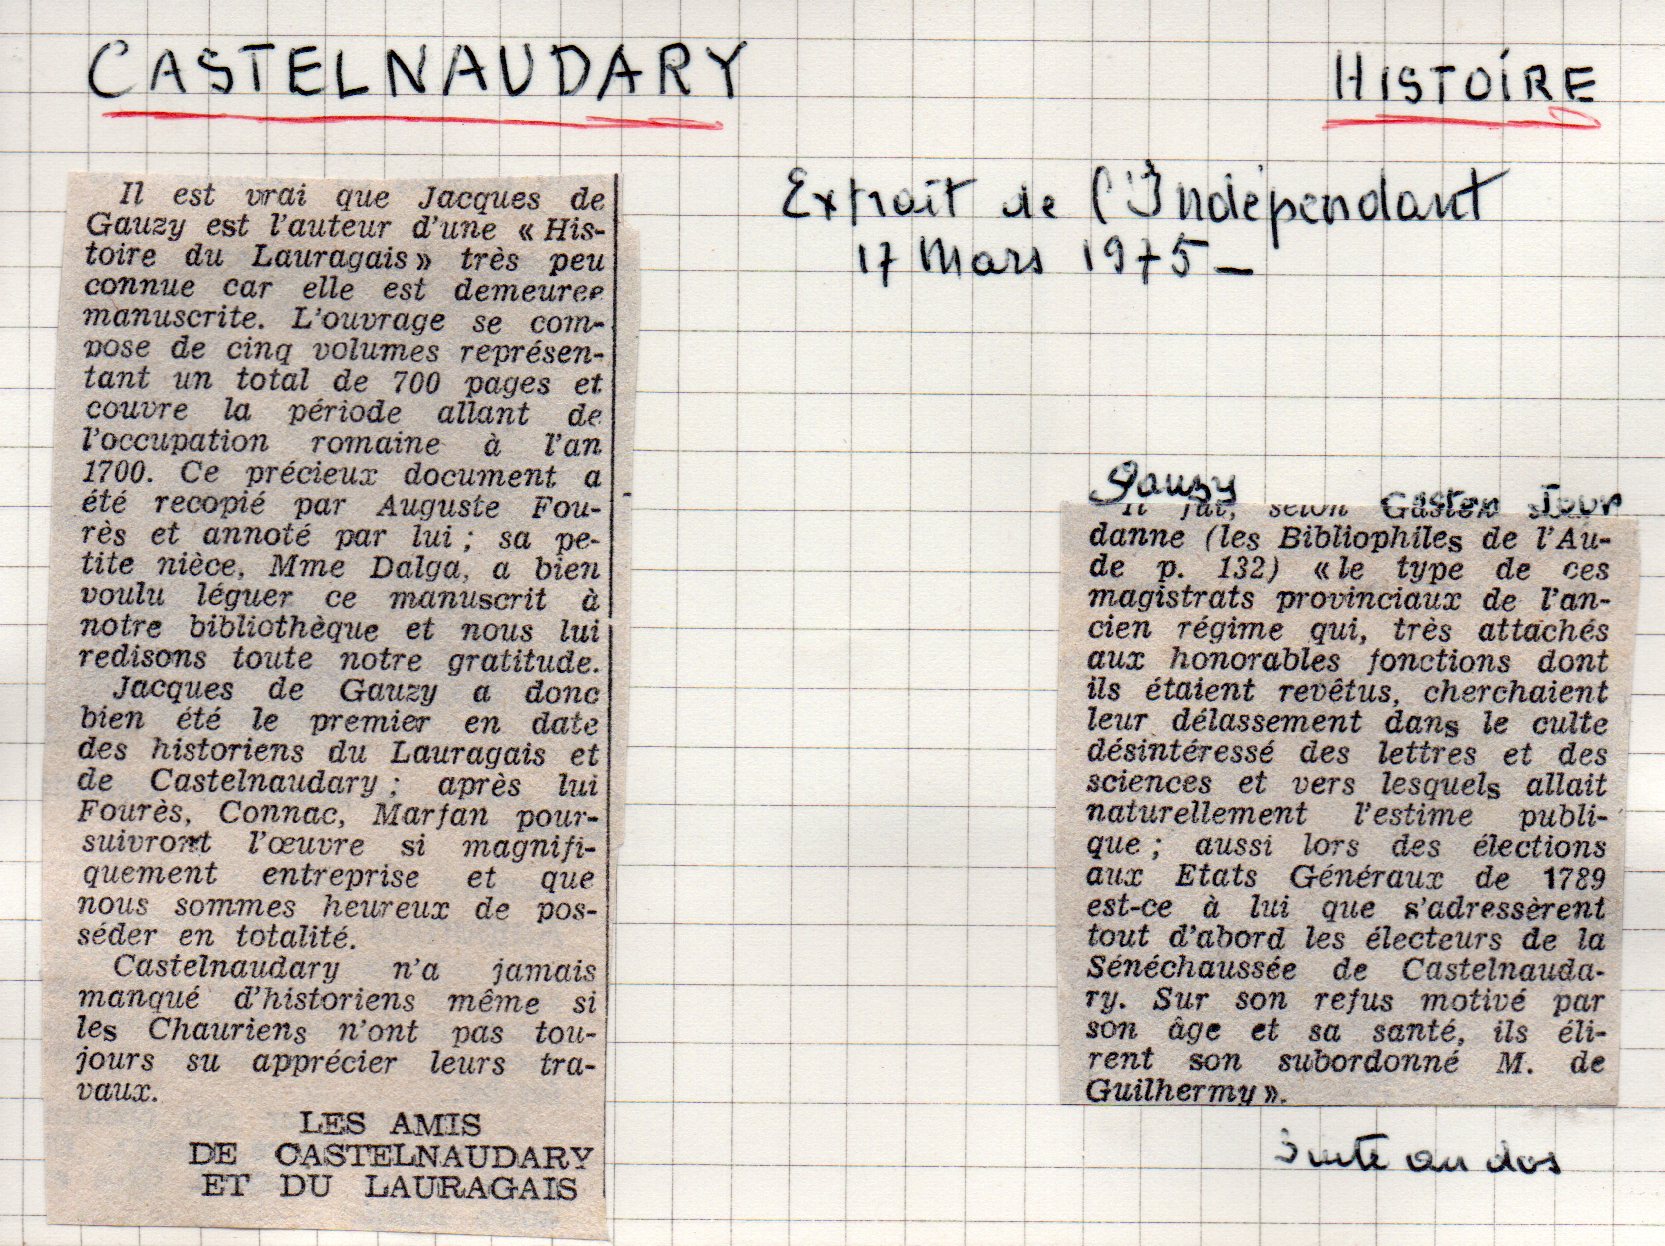 CASTELNAUDARY
HISTOIRE
Extrait de l'Indépendant
17 Mars 1975 -
Il est vrai que Jacques de
Gauzy est l'auteur d'une « His-
toire du Lauragais » très peu
connue car elle est demeuree
manuscrite. L'ouvrage se com-
pose de cinq volumes représen-
tant un total de 700 pages et
couvre la période allant de
l'occupation romaine à l'an
1700. Ce précieux document a
été recopié par Auguste Fou-
rès et annoté par lui ; sa pe-
tite nièce, Mme Dalga, a bien
voulu léguer ce manuscrit à
notre bibliothèque et nous lui
redisons toute notre gratitude.
Jacques de Gauzy a donc
bien été le premier en date
des historiens du Lauragais et
de Castelnaudary ; après lui
Fourès, Connac, Marfan pour-
suivront l'œuvre si magnifi-
quement entreprise et que
nous sommes heureux de pos-
séder en totalité.
Castelnaudary n'a jamais
manqué d'historiens même si
les Chauriens n'ont pas tou-
jours su apprécier leurs tra-
vaux.
LES AMIS
DE CASTELNAUDARY
ET DU LAURAGAIS
Gauzy
Il fut, selon Gaston Jour
danne (les Bibliophiles de l'Au-
de p. 132) « le type de ces
magistrats provinciaux de l'an-
cien régime qui, très attachés
aux honorables fonctions dont
ils étaient revêtus, cherchaient
leur délassement dans le culte
désintéressé des lettres et des
sciences et vers lesquels allait
naturellement l'estime publi-
que ; aussi lors des élections
aux Etats Généraux de 1789
est-ce à lui que s'adressèrent
tout d'abord les électeurs de la
Sénéchaussée de Castelnauda-
ry. Sur son refus motivé par
son âge et sa santé, ils éli-
rent son subordonné M. de
Guilhermy ».
Suite au dos